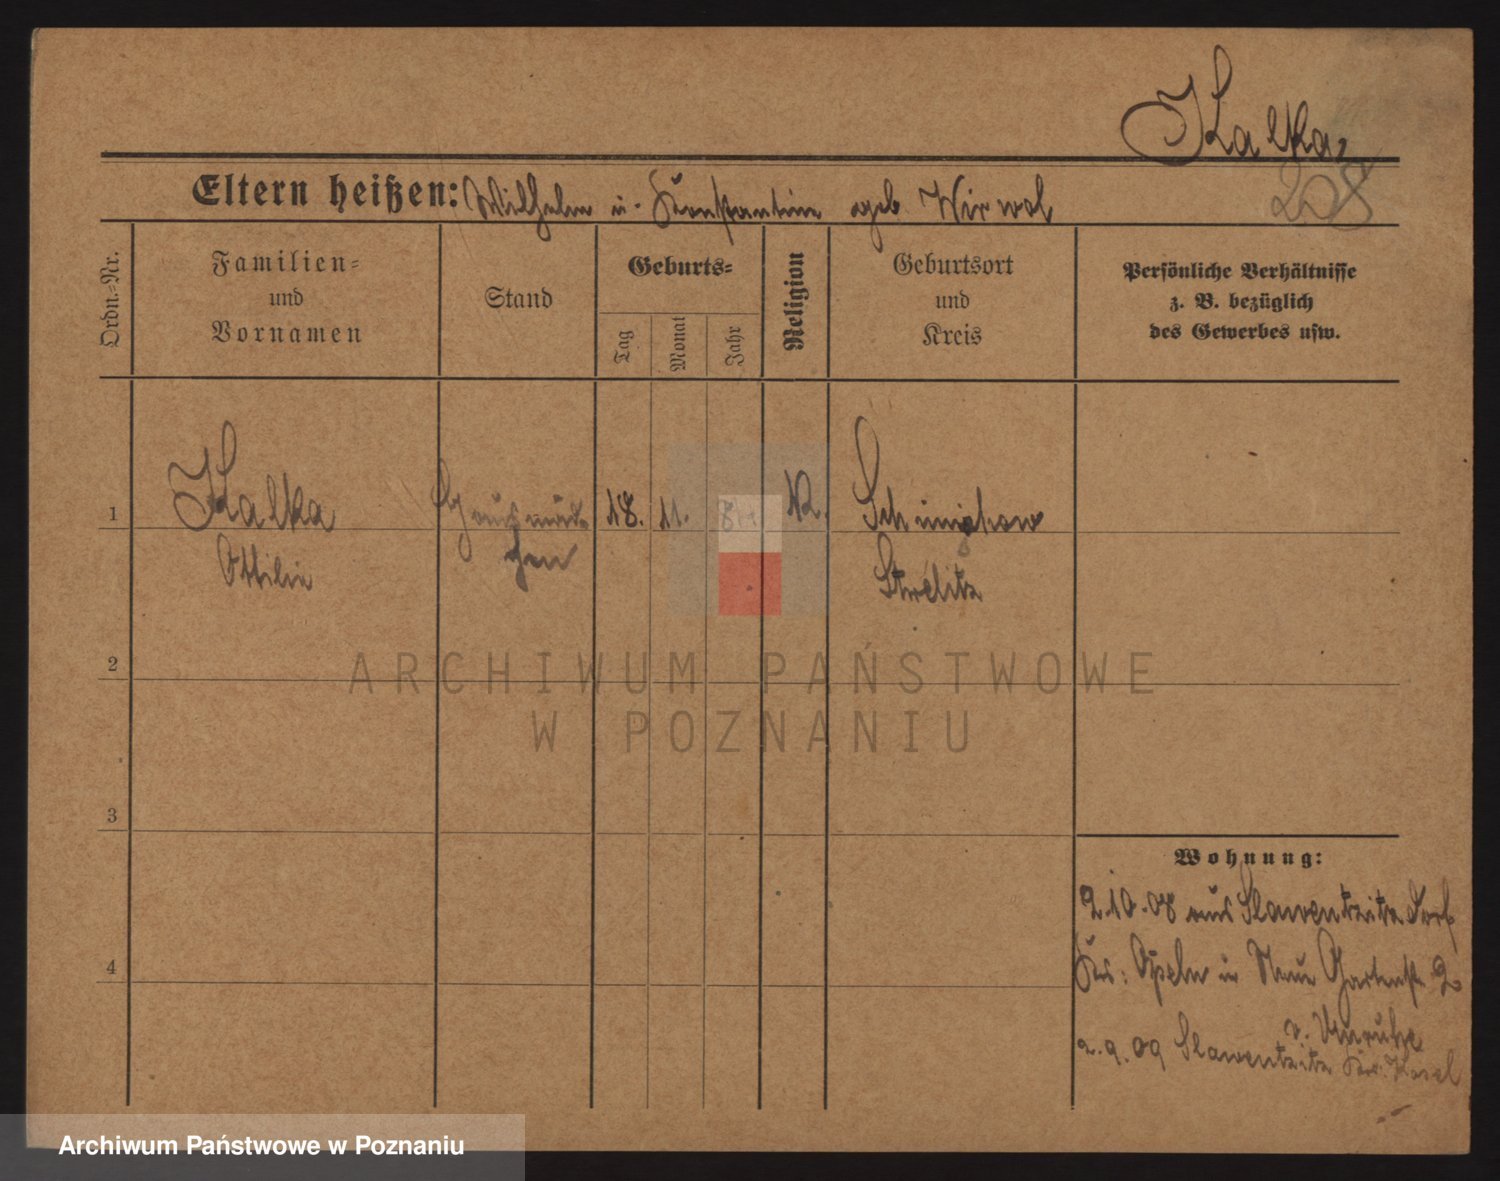 Kalka,
208
Eltern heißen: Wilhelm u. Konstantine geb Wirwol
Ordn.-Nr.
Familien-
und
Vornamen
Stand
Geburts-
Tag
Monat
Jahr
Religion
Geburtsort
und
Kreis
Persönliche Verhältnisse
z. B. bezüglich
des Gewerbes usw.
1
Kalka
Ottilie
Hausmäd-
chen
18. 11.
K.
Schimischow
Strelitz
2
3
4
Wohnung:
2.10.08 aus Slawentzitz Dorf
Krs: Opeln in Neue Gartenstr 2
v. Unruhe
2.9.09 Slawentzitz Krs. Kosel
ARCHIWUM PAŃSTWOWE
W POZNANIU
Archiwum Państwowe w Poznaniu